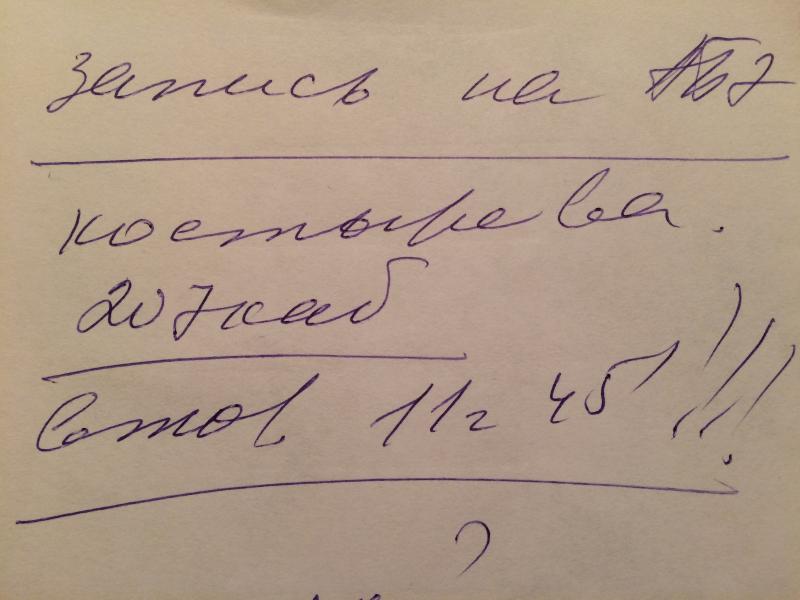 запись на
костырева.
207 каб
11 ч 45!!!